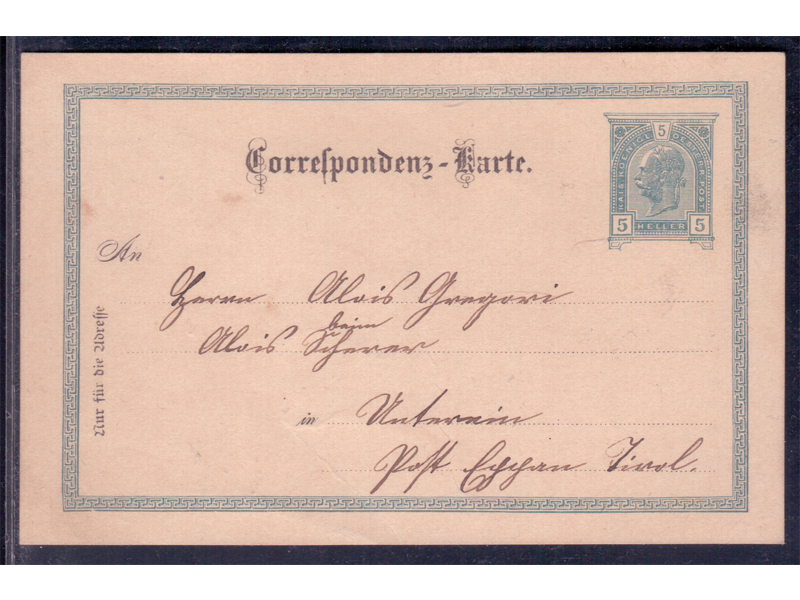 Correspondenz-Karte.
5
KAIS. KOENIGL. OESTERR. POST
5 HELLER 5
An
Herrn Alois Gregori
beim
Alois Scherer
in Unterrain
Post Eppan Tirol.
Nur für die Adresse